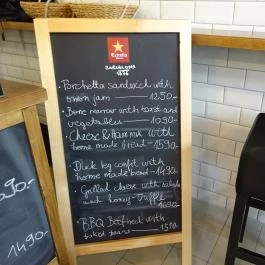 Estrella
BARCELONA
1876
Porchetta sandwich with
onion jam — 1250.-
Bone marrow with toast and
vegetables — 1090.-
Cheese & Ham mix with
home made bread - 1490.-
Duck leg confit with
home made bread - 1490.-
Grilled cheese with salads
and honey-truffle
1690.-
BBQ Beef with
baked beans - 1590.-
90.-
1490.-